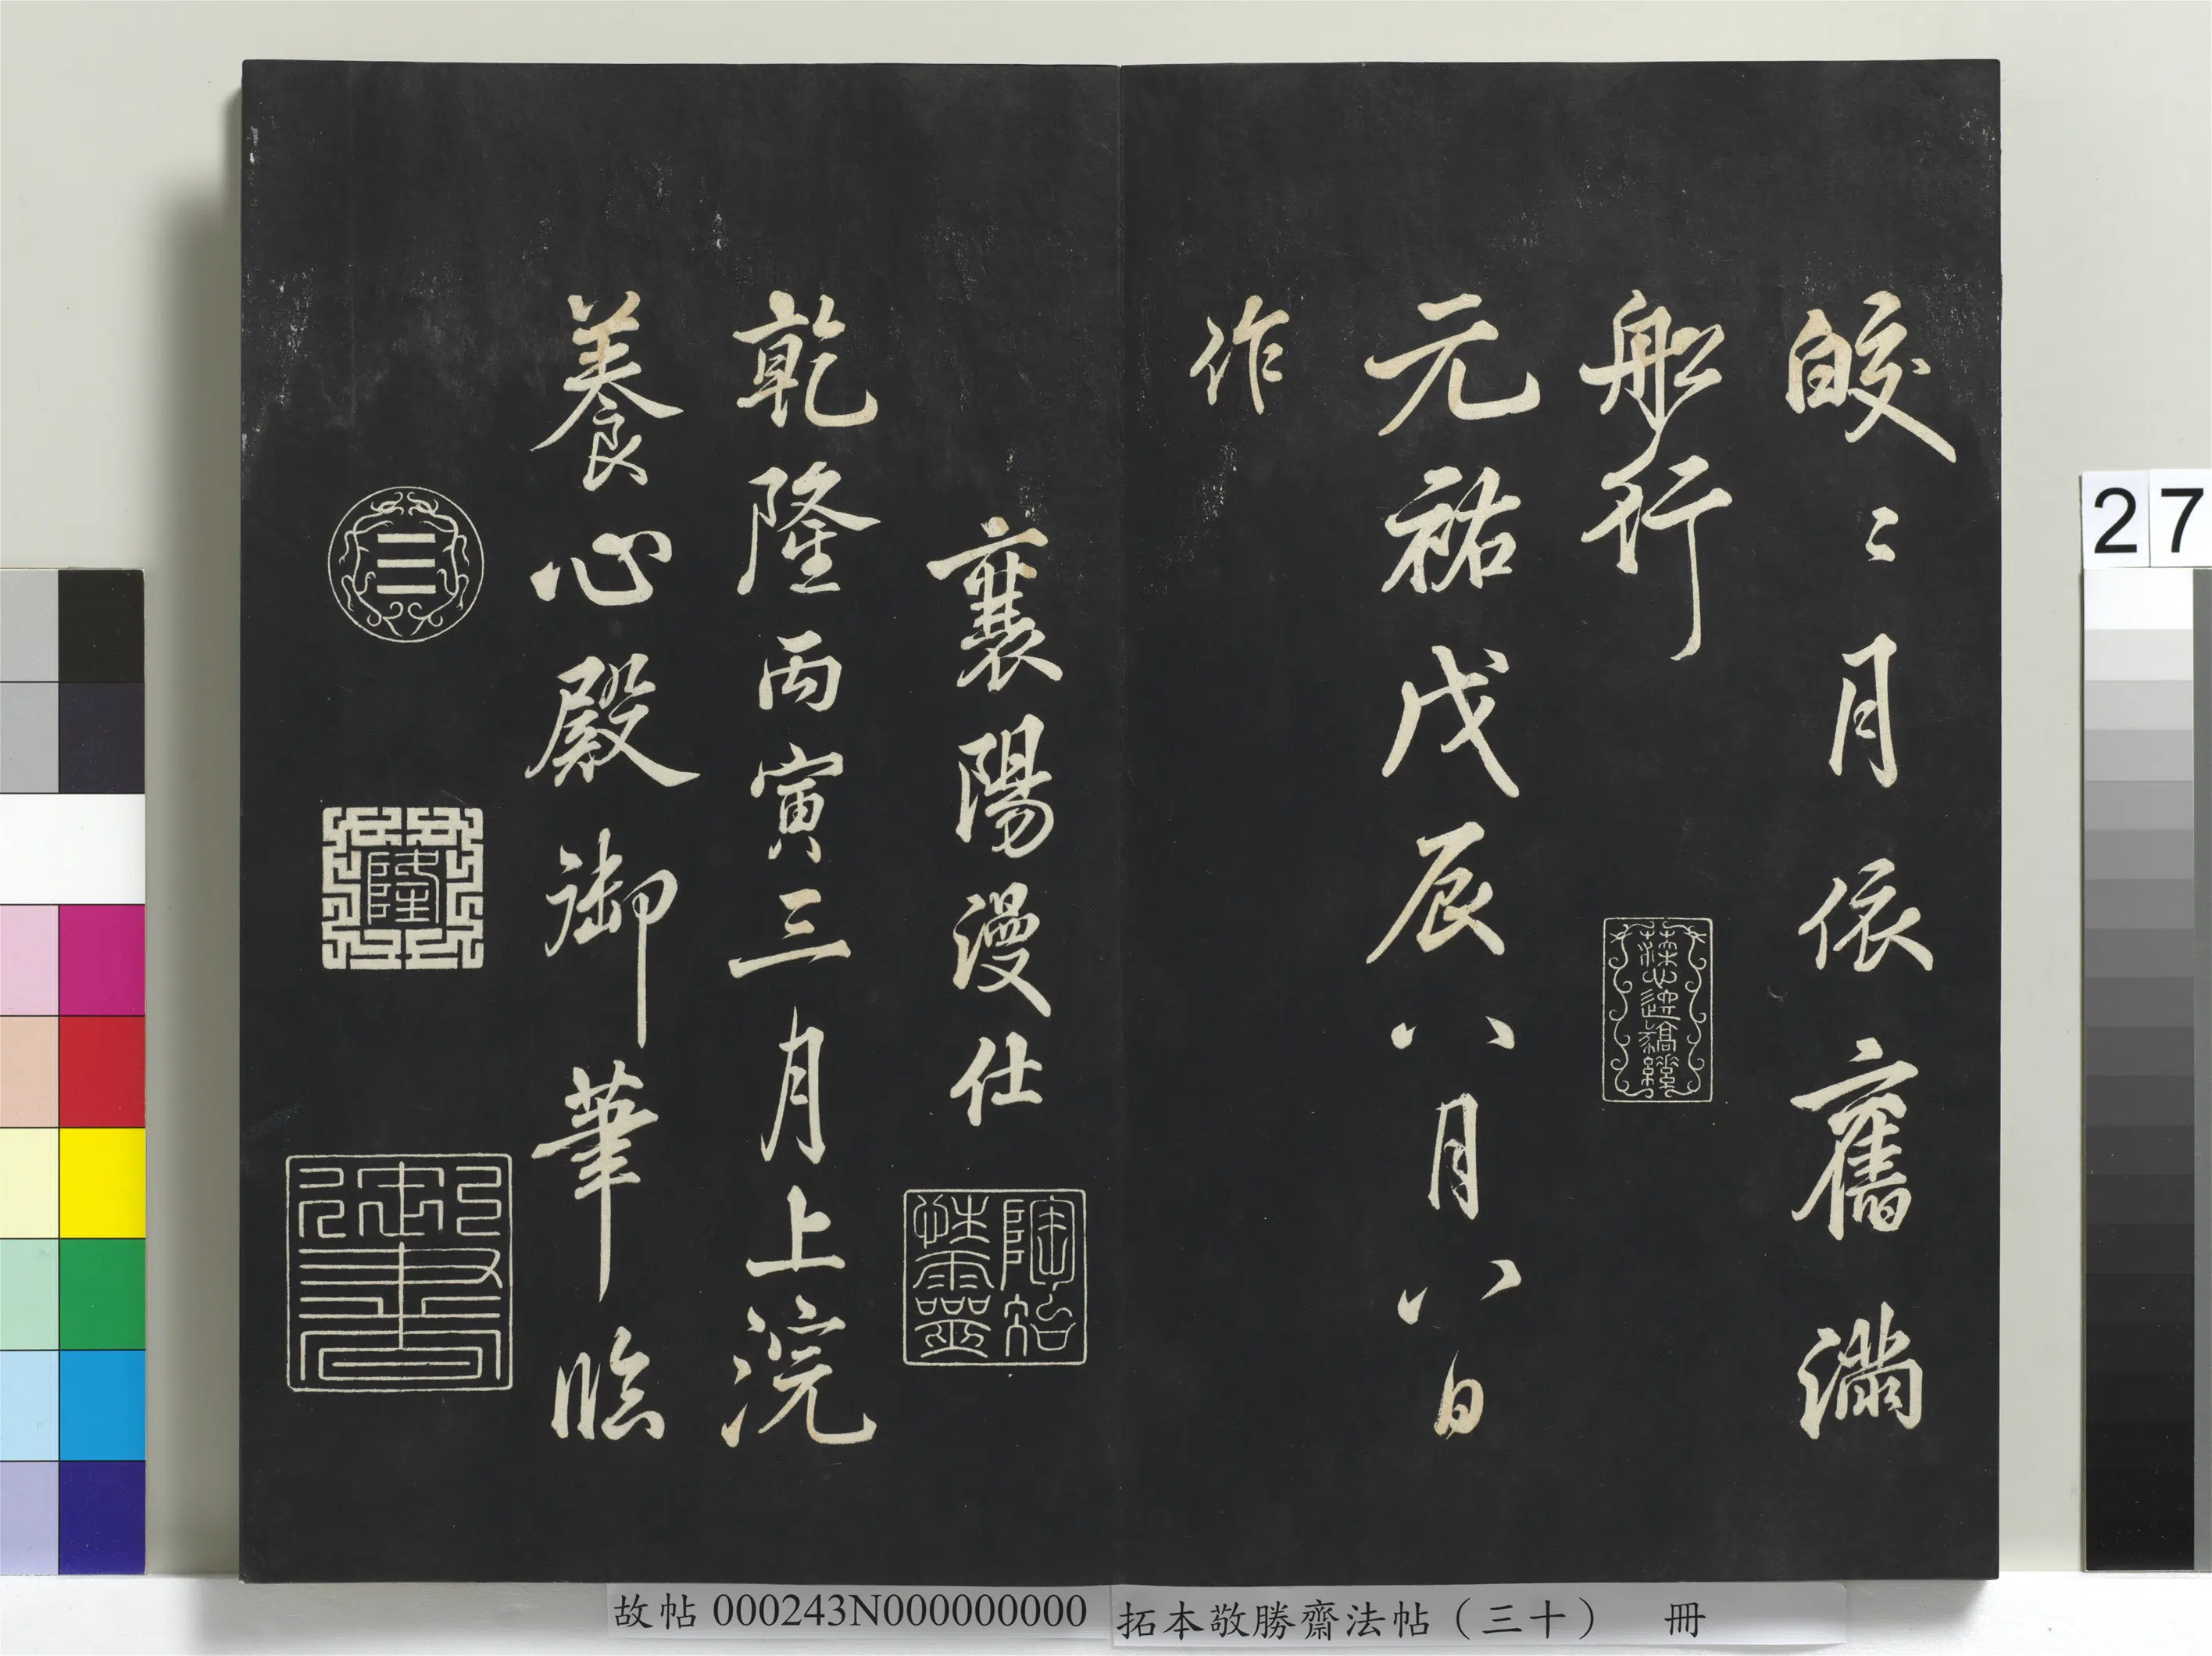 皎〻月依舊滿
船行
元祐戊辰八月八日
作
襄陽漫仕
陶冶性靈
乾隆丙寅三月上浣
養心殿御筆臨
☰
乾隆
御書
27
故帖 000243N000000000
拓本敬勝齋法帖（三十） 冊